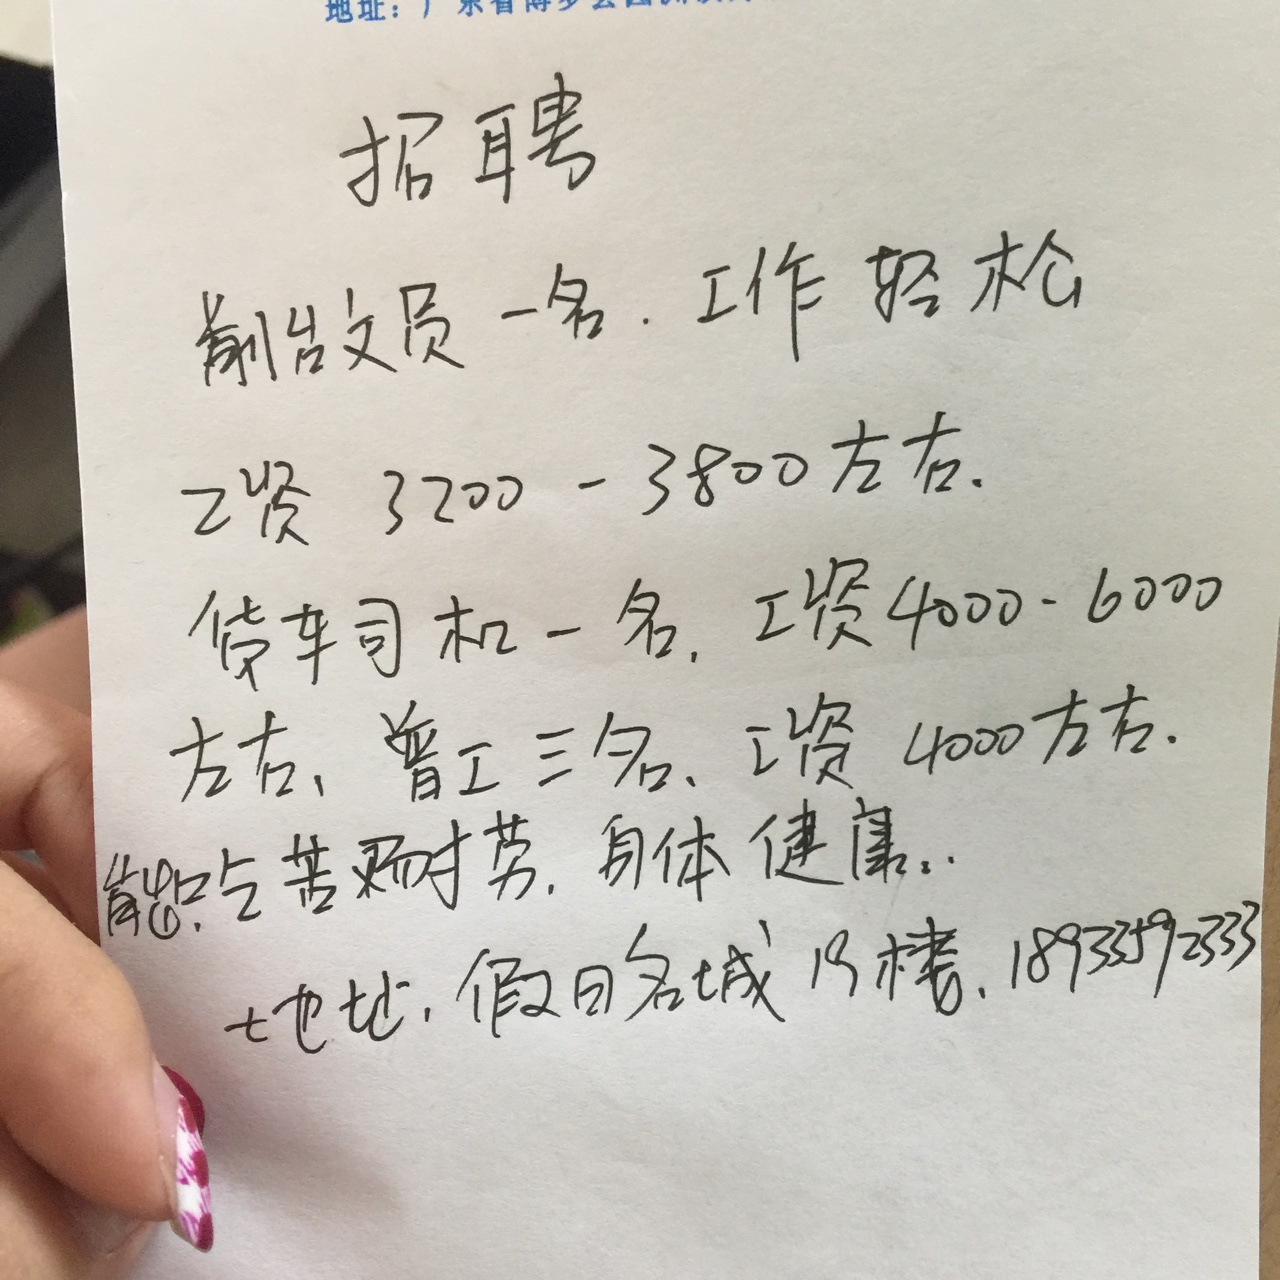 地址：广东省博罗县园洲镇
招聘
前台文员一名.工作轻松
工资 3200-3800左右.
货车司机一名.工资4000-6000
左右、普工三名、工资 4000左右.
能吃苦耐劳.身体健康..
地址.假日名城19楼.18933592333